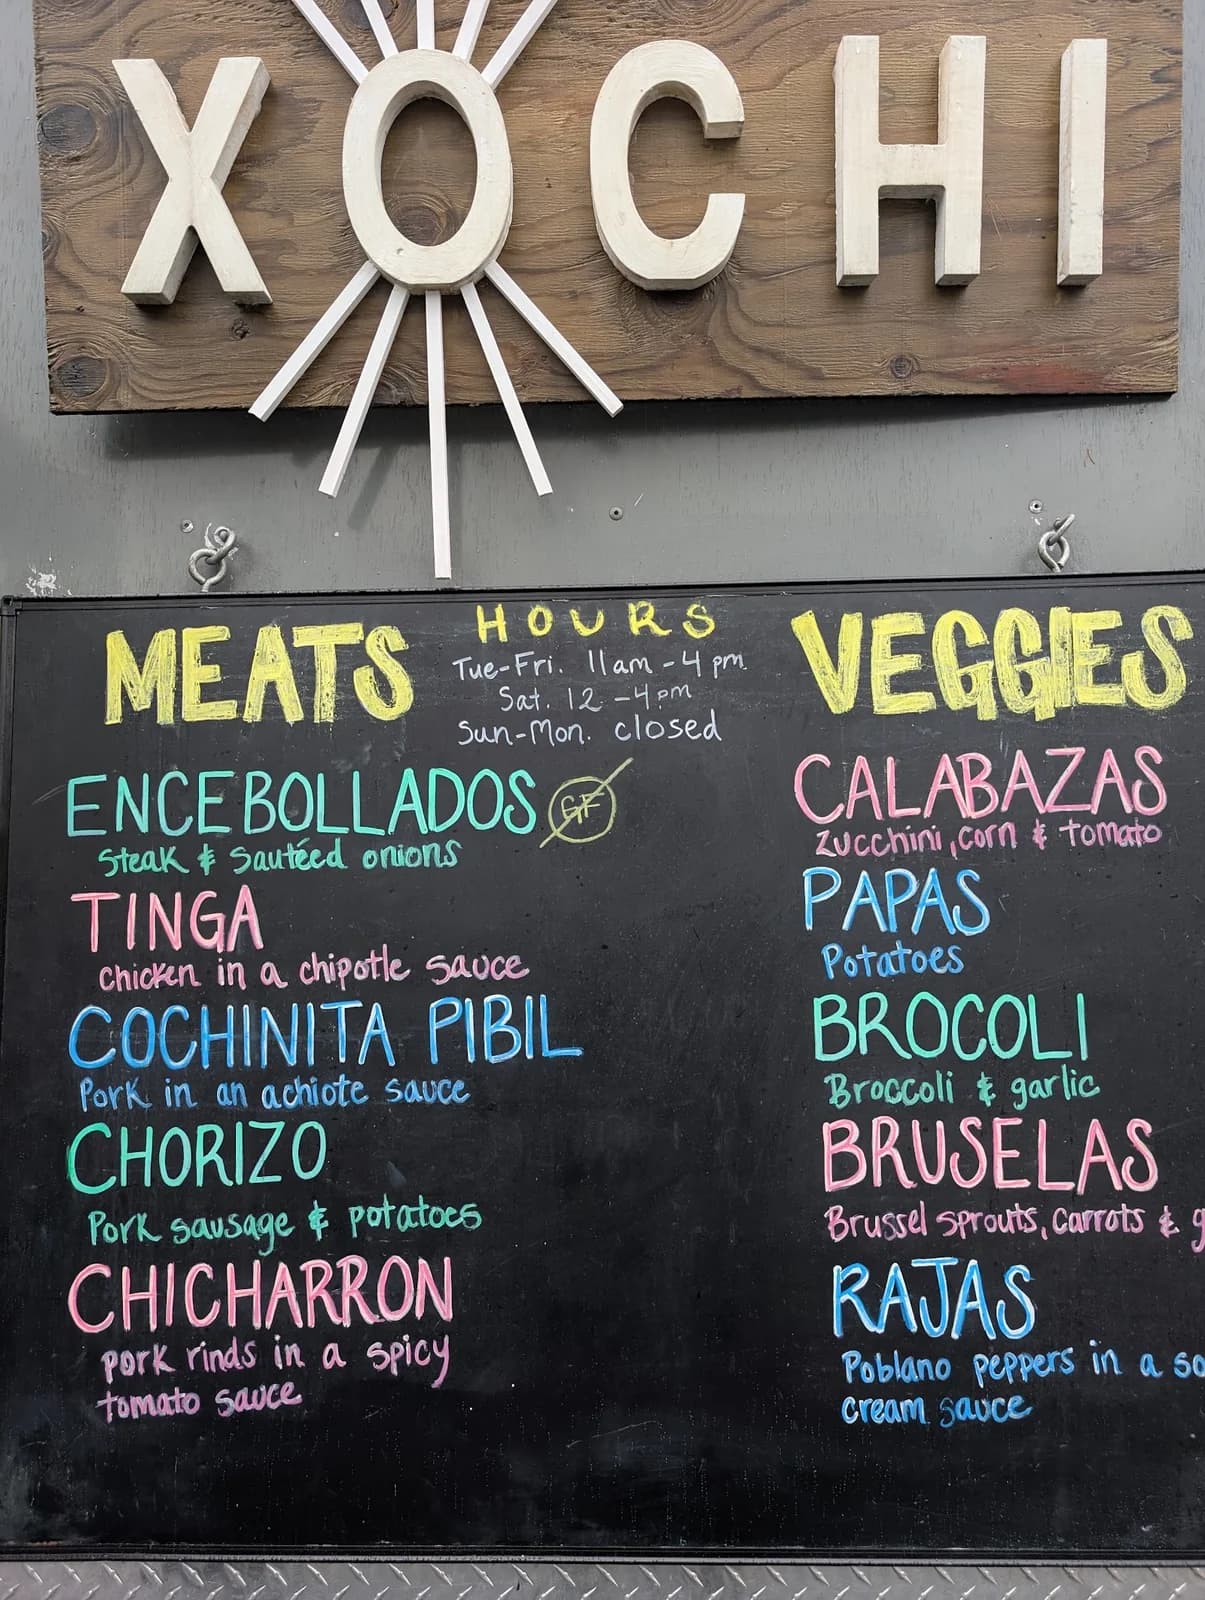 XOCHI
MEATS
HOURS
Tue-Fri. 11am-4pm
Sat. 12-4pm
Sun-Mon. closed
ENCEBOLLADOS GF
Steak & Sautéed onions
TINGA
chicken in a chipotle sauce
COCHINITA PIBIL
Pork in an achiote sauce
CHORIZO
Pork sausage & potatoes
CHICHARRON
pork rinds in a spicy
tomato sauce
VEGGIES
CALABAZAS
Zucchini, corn & tomato
PAPAS
Potatoes
BROCOLI
Broccoli & garlic
BRUSELAS
Brussel sprouts, carrots &
RAJAS
Poblano peppers in a
cream sauce